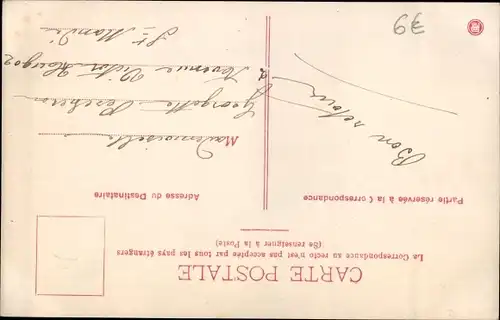 CARTE POSTALE
La Correspondance au recto n'est pas acceptée par tous les pays étrangers
(Se renseigner à la Poste)
Partie réservée à la Correspondance
Adresse du Destinataire
Bon retour
Mademoiselle
Georgette
Avenue Victor Hugo 202
St Mandé
39